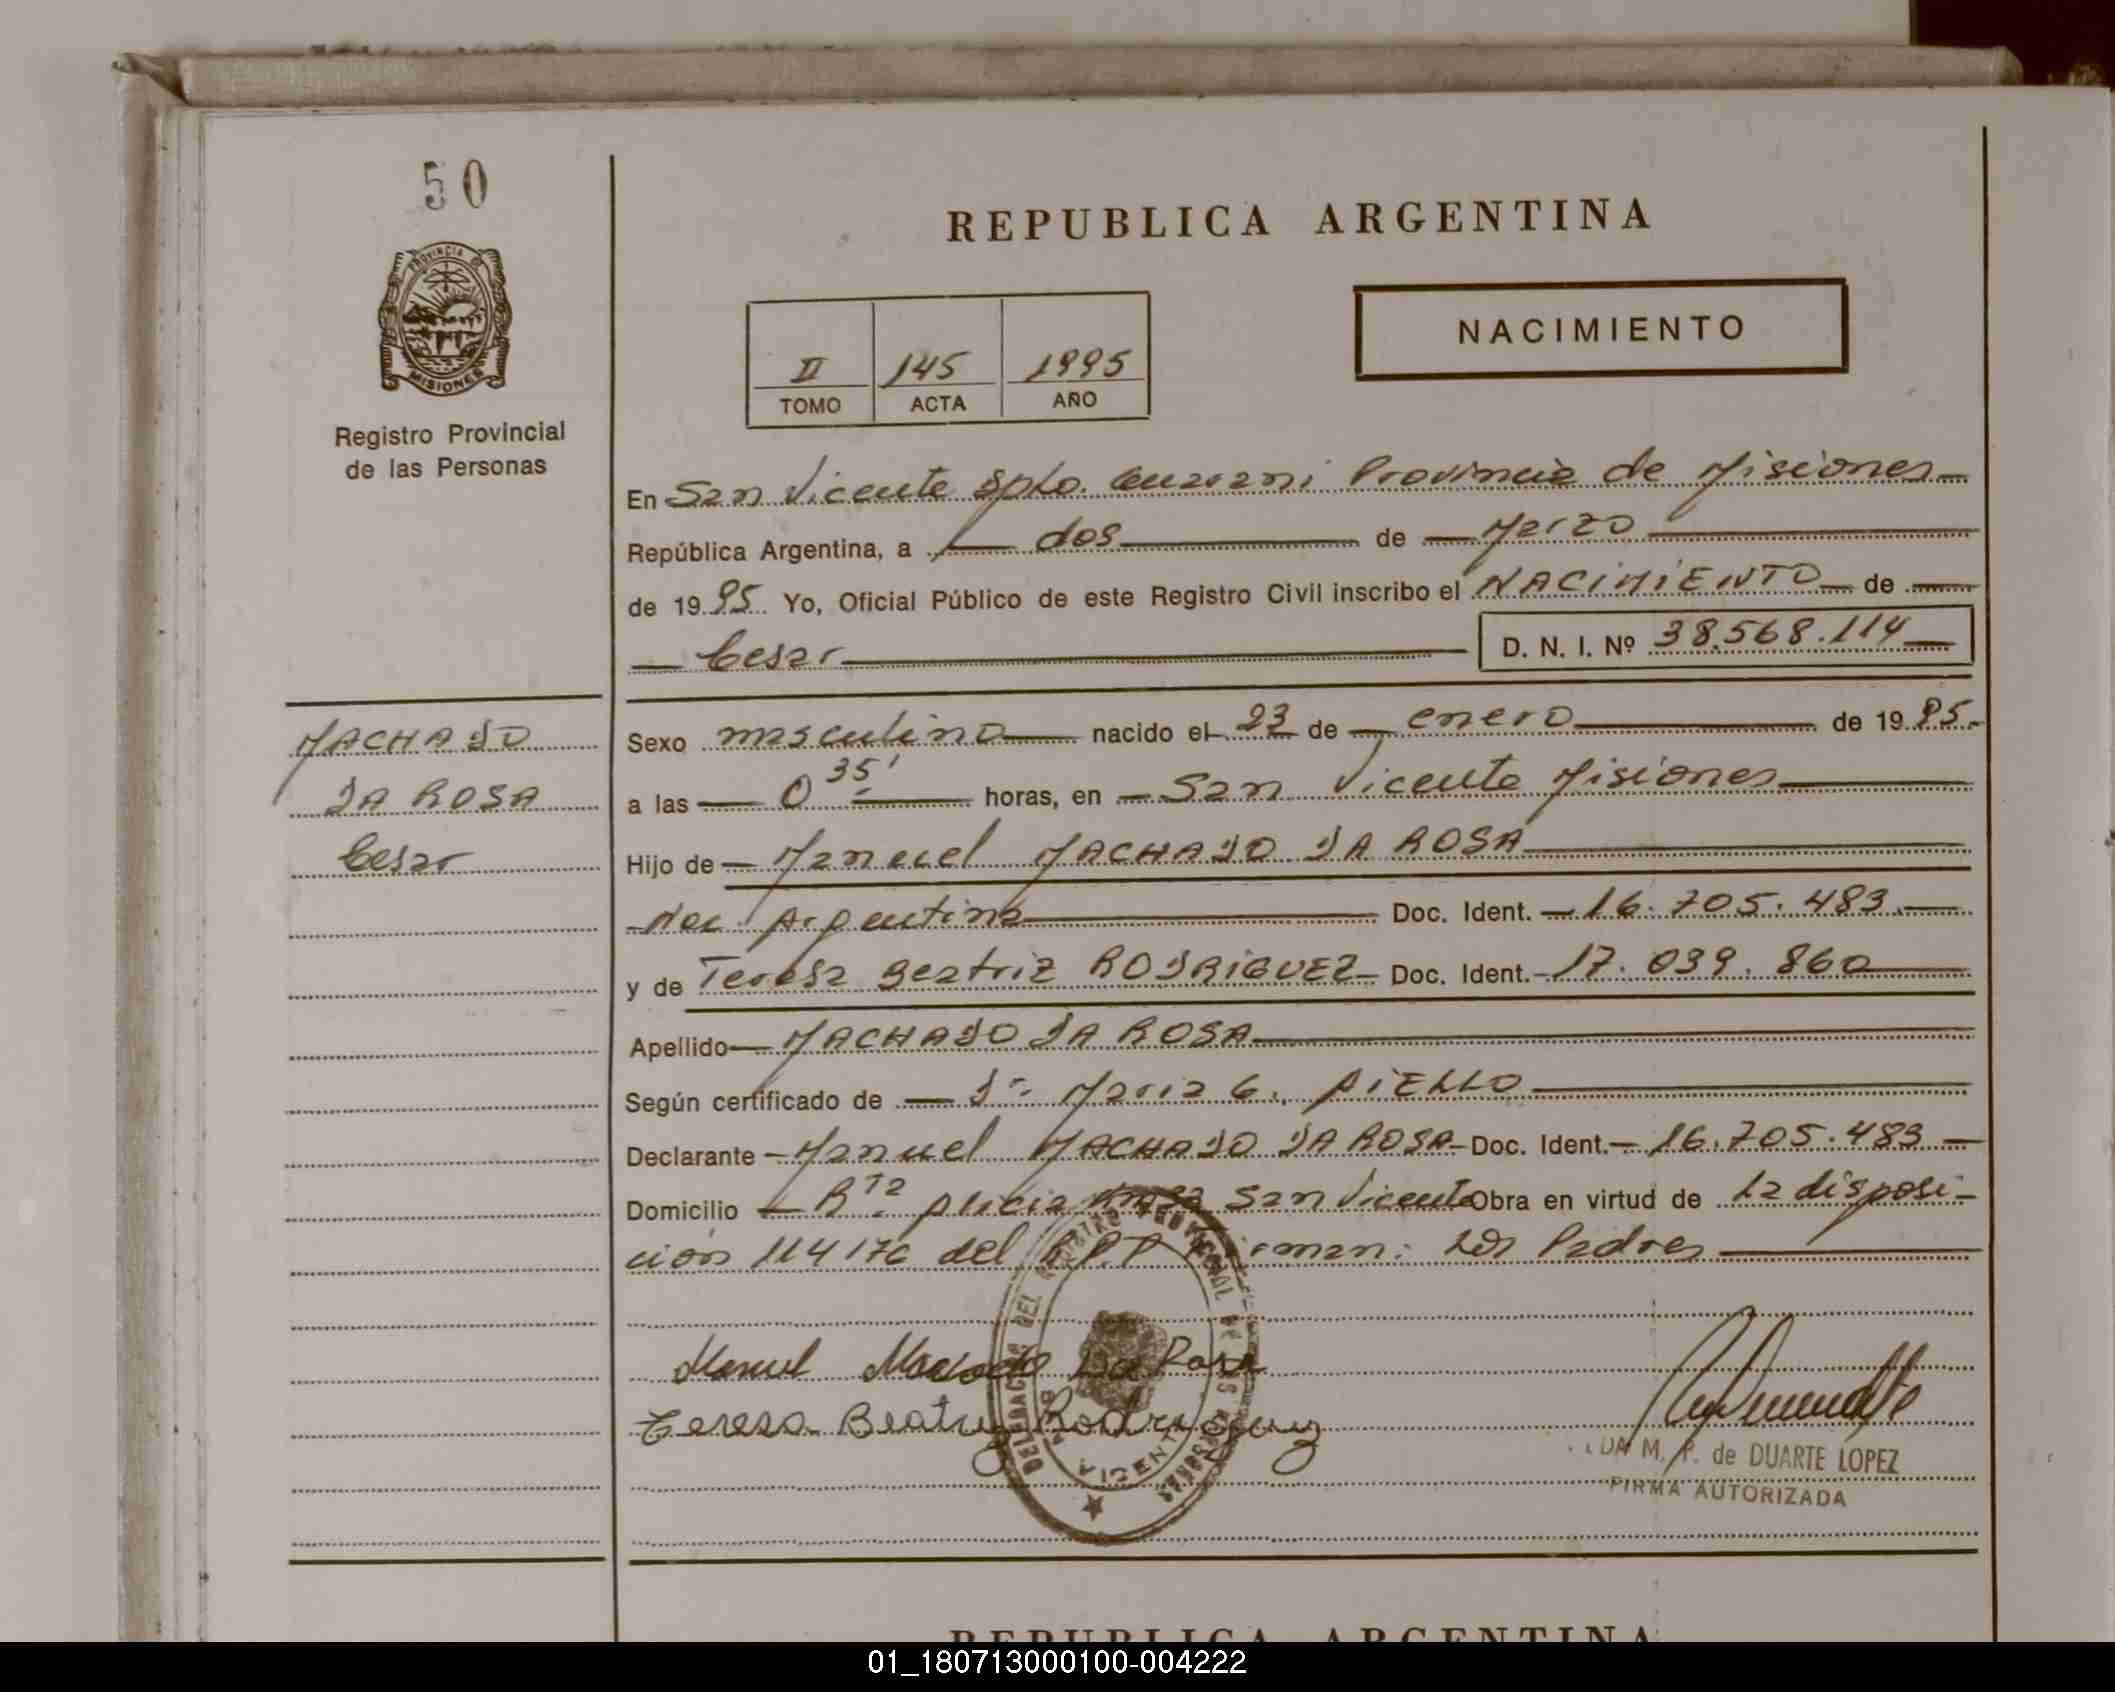 50
REPUBLICA ARGENTINA
PROVINCIA DE
MISIONES
NACIMIENTO
II 145 1995
TOMO ACTA AÑO
Registro Provincial
de las Personas
En San Vicente Dpto. Guarani Provincia de Misiones
República Argentina, a dos de Marzo
de 1995 Yo, Oficial Público de este Registro Civil inscribo el NACIMIENTO de
Cesar D. N. I. Nº 38.568.114
MACHADO
DA ROSA
Cesar
Sexo masculino nacido el 23 de enero de 1995.
a las 0 35' horas, en San Vicente Misiones
Hijo de Manuel MACHADO DA ROSA
nac. Argentina Doc. Ident. 16.705.483
y de Teresa Beatriz RODRIGUEZ Doc. Ident. 17.039.860
Apellido MACHADO DA ROSA
Según certificado de Dr. Maria G. AIELLO
Declarante Manuel MACHADO DA ROSA Doc. Ident. 16.705.483
Domicilio San Vicente Obra en virtud de la disposi-
ción 114/76 del Firman: Los Padres
Manuel Machado Da Rosa
Teresa Beatriz Rodriguez
DELEGACION DEL REGISTRO PROVINCIAL DE LAS PERSONAS
VICENTE
M. P. de DUARTE LOPEZ
FIRMA AUTORIZADA
REPUBLICA ARGENTINA
01_180713000100-004222